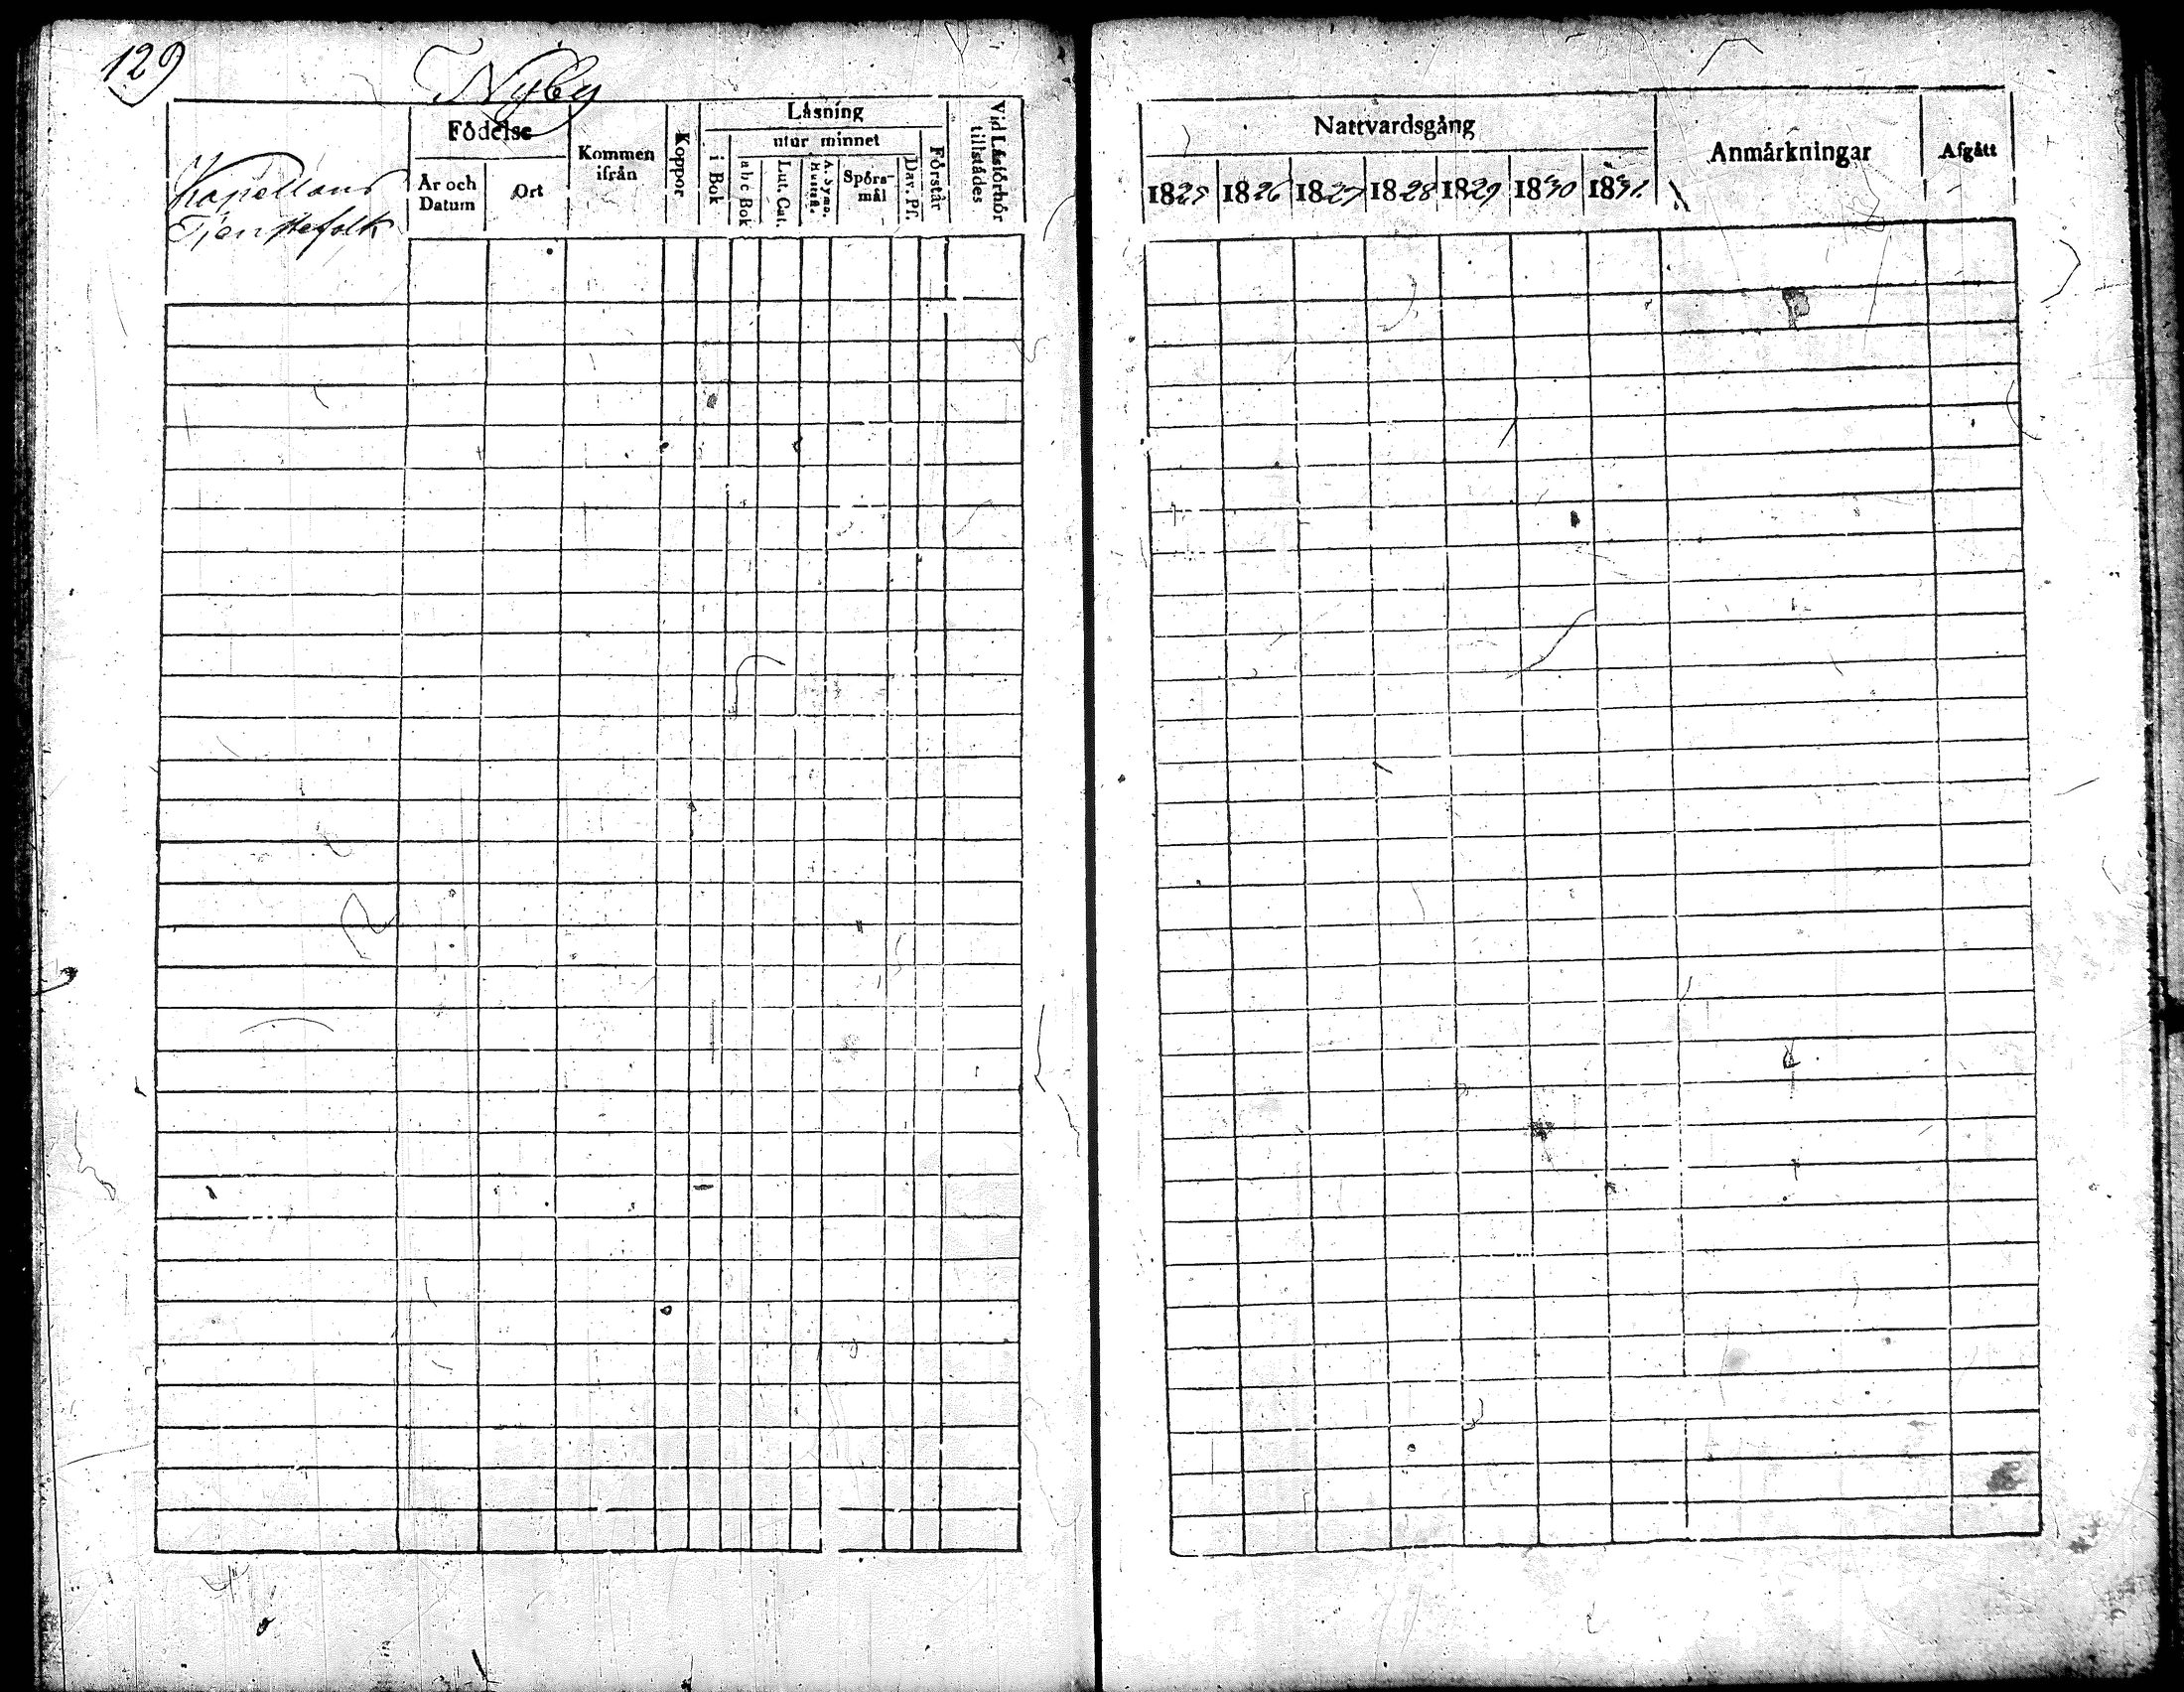 129
Nyby
Kapellans
Tjenstefolk
Födelse
År och
Datum
Ort
Kommen
ifrån
Koppor
Läsning
utur minnet
i Bok
abc Bok
Lut. Cat.
A. Symb.
Hustafl.
Spörs-
mål
Dav. Ps.
Förstår
Vid Läsförhör
tillstådes
Nattvardsgång
1825 1826 1827 1828 1829 1830 1831.
Anmärkningar
Afgått